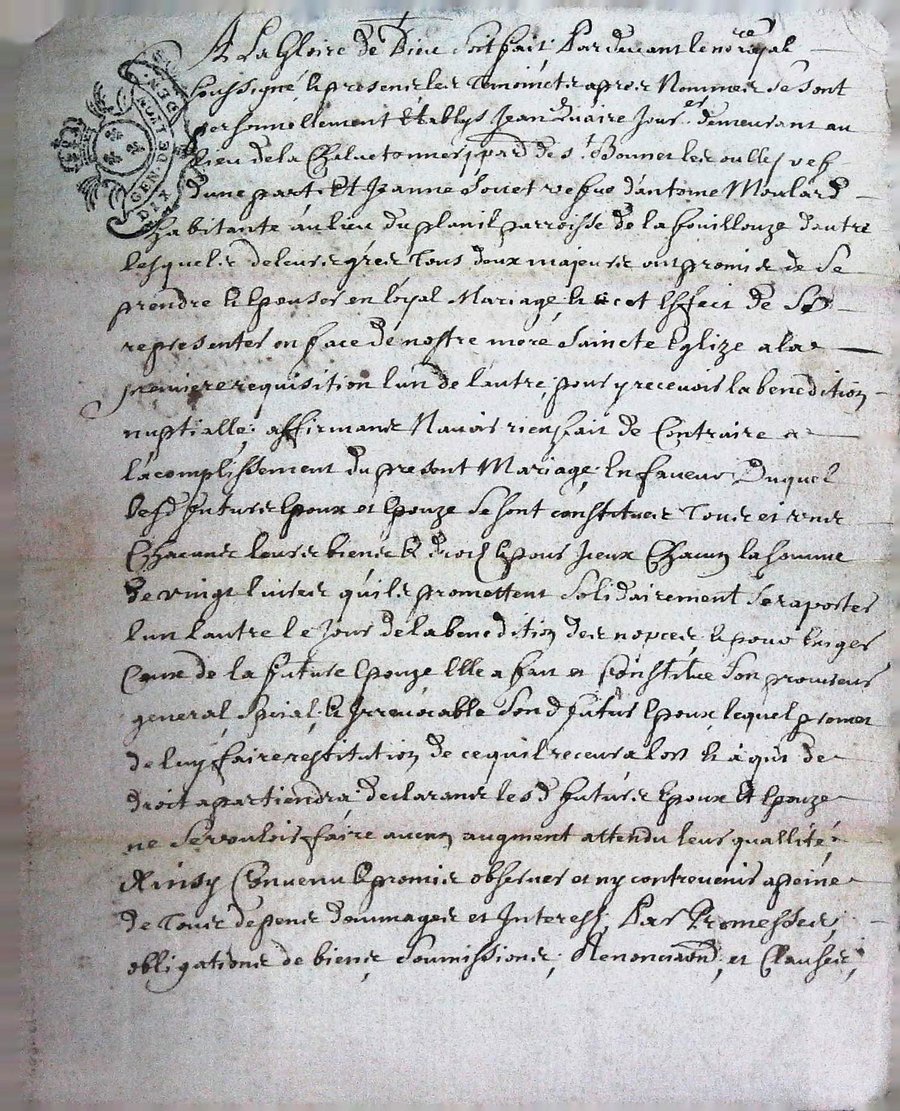 A La Gloire de Dieu soit fait, Pardevant le no.re royal
soussigné, & presents les Temoins cy apres Nommes se sont
personnellement Establys Jean Jour.er demeurant au
lieu de la parr. de S.t Bonnet les oulles vef
d'une part, Et Jeanne vefve d'antoine Moulard
habitante au lieu du planil parroisse de la fouillouze d'autre
lesquels de leurs grés Tous deux majeurs ont promis de Se
prendre & Epouser en loyal Mariage, & a cet Effect de Se
representer en face de nostre mere Saincte Eglize a la
premiere requisition l'un de l'autre, pour y recevoir la benediction
nuptialle, affirmants N'avoir rien fait de Contraire a
l'acomplissement du present Mariage, En faveur Duquel
lesd. futurs Epoux et Epouze Se sont constitués Tous et uns
Chacuns leurs biens & droits & pour iceux Chacun la somme
de vingt livres qu'ils promettent Solidairement Se raporter
l'un l'autre le Jour de la benediction des nopces, & pour Exiger
Ceux de la future Epouze Elle a fait et Constitue Son procureur
general, Special, & Irrevocable Son d. futur Epoux, lequel promet
de luy faire restitution de ce qu'il recevra lors & à qui de
droit apartiendra declarants lesd. futurs Epoux Et Epouze
ne Se vouloir faire aucun augment attendu leur quallité,
Ainsy Convenu & promis observer et ny contrevenir a peine
de Tous depens dommages et Interests, Par Promesses,
obligations de biens, Soumissions, Renonciaons, et Clauses,